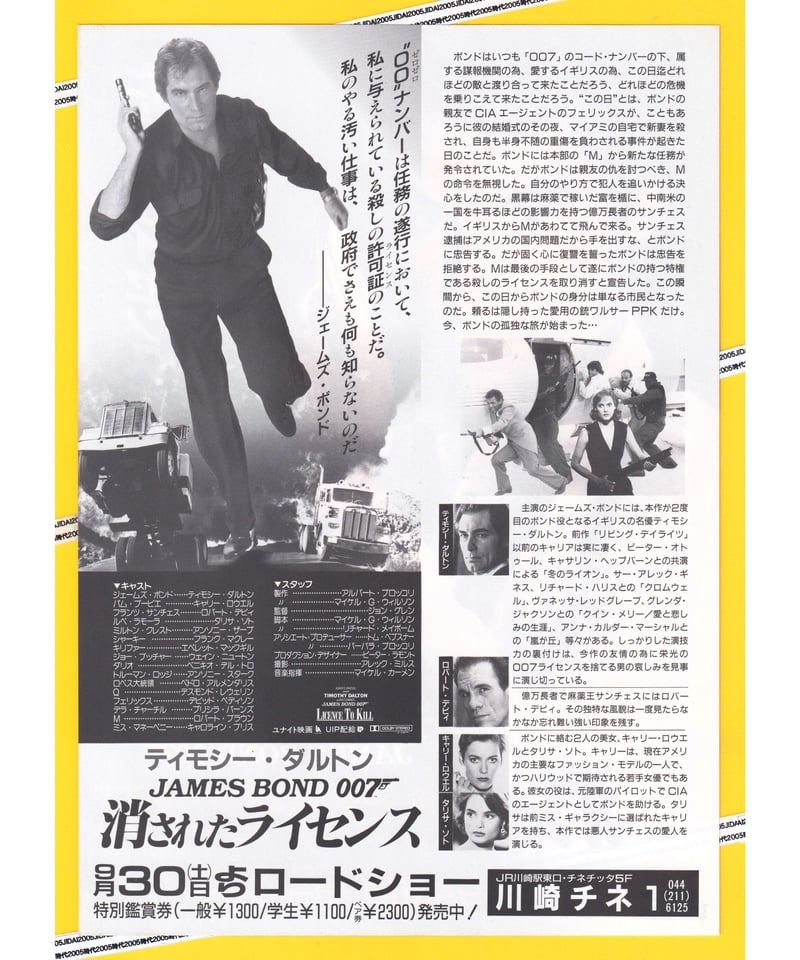 “00”ナンバーは任務の遂行において、
ゼロゼロ
私に与えられている殺しの許可証のことだ。
ライセンス
私のやる汚い仕事は、政府でさえも何も知らないのだ
――ジェームズ・ボンド
ボンドはいつも「007」のコード・ナンバーの下、属
する諜報機関の為、愛するイギリスの為、この日迄どれ
ほどの敵と渡り合って来たことだろう、どれほどの危機
を乗りこえて来たことだろう。“この日”とは、ボンドの
親友でCIAエージェントのフェリックスが、こともあ
ろうに彼の結婚式のその夜、マイアミの自宅で新妻を殺
され、自身も半身不随の重傷を負わされる事件が起きた
日のことだ。ボンドには本部の「M」から新たな任務が
発令されていた。だがボンドは親友の仇を討つべき、M
の命令を無視した。自分のやり方で犯人を追いかける決
心をしたのだ。黒幕は麻薬で稼いだ富を楯に、中南米の
一国を牛耳るほどの影響力を持つ億万長者のサンチェス
だ。イギリスからMがあわてて飛んで来る。サンチェス
逮捕はアメリカの国内問題だから手を出すな、とボンド
に忠告する。だが固く心に復讐を誓ったボンドは忠告を
拒絶する。Mは最後の手段として遂にボンドの持つ特権
である殺しのライセンスを取り消すと宣告した。この瞬
間から、この日からボンドの身分は単なる市民となった
のだ。頼るは隠し持った愛用の銃ワルサーPPKだけ。
今、ボンドの孤独な旅が始まった…
ティモシー・ダルトン
主演のジェームズ・ボンドには、本作が2度
目のボンド役となるイギリスの名優ティモシ
ー・ダルトン。前作「リビング・デイライツ」
以前のキャリアは実に凄く、ピーター・オト
ゥール、キャサリン・ヘップバーンとの共演
による「冬のライオン」。サー・アレック・ギ
ネス、リチャード・ハリスとの「クロムウェ
ル」、ヴァネッサ・レッドグレーブ、グレンダ・
ジャクソンとの「クイン・メリー／愛と悲し
みの生涯」、アンナ・カルダー・マーシャルと
の「嵐が丘」等々がある。しっかりした演技
力の裏付けは、今作の友情の為に栄光の
007ライセンスを捨てる男の哀しみを見事
に演じ切っている。
ロバート・デビィ
億万長者で麻薬王サンチェスにはロバー
ト・デビィ。その独特な風貌は一度見たらな
かなか忘れ難い強い印象を残す。
キャリー・ロウエル
タリサ・ソト
ボンドに絡む2人の美女、キャリー・ロウエ
ルとタリサ・ソト。キャリーは、現在アメリカ
の主要なファッション・モデルの一人で、
かつハリウッドで期待される若手女優でもあ
る。彼女の役は、元陸軍のパイロットでCIA
のエージェントとしてボンドを助ける。タリ
サは前ミス・ギャラクシーに選ばれたキャリ
アを持ち、本作では悪人サンチェスの愛人を
演じる。
▼キャスト
ジェームズ・ボンド……ティモシー・ダルトン
パム・ブービエ……キャリー・ロウエル
フランツ・サンチェス……ロバート・デビィ
ルペ・ラモーラ……タリサ・ソト
ミルトン・クレスト……アンソニー・ザーブ
シャーキー……フランク・マクレー
キリファー……エベレット・マックギル
ジョー・ブッチャー……ウェイン・ニュートン
ダリオ……ベニキオ・デル・トロ
トルーマン・ロッジ……アンソニー・スターク
ロペス大統領……ペドロ・アルメンダリス
Q……デスモンド・レウェリン
フェリックス……デビッド・ヘディソン
デラ・チャーチル……プリシラ・バーンズ
M……ロバート・ブラウン
ミス・マネーペニー……キャロライン・ブリス
▼スタッフ
製作……アルバート・ブロッコリ
〃……マイケル・G・ウィルソン
監督……ジョン・グレン
脚本……マイケル・G・ウィルソン
〃……リチャード・メイボーム
アソシエート・プロデューサー……トム・ペブスナー
〃……バーバラ・ブロッコリ
プロダクション・デザイナー……ピーター・ラモント
撮影……アレック・ミルス
音楽指揮……マイケル・カーメン
TIMOTHY DALTON
JAMES BOND 007
LICENCE TO KILL
ユナイト映画 UIP配給
DOLBY STEREO
ティモシー・ダルトン
JAMES BOND 007
消されたライセンス
9月30日(土)よりロードショー
特別鑑賞券(一般¥1300/学生¥1100/ペア券¥2300)発売中！
JR川崎駅東口・チネチッタ5F
川崎チネ1
044
(211)
6125
時代2005JIDAI2005